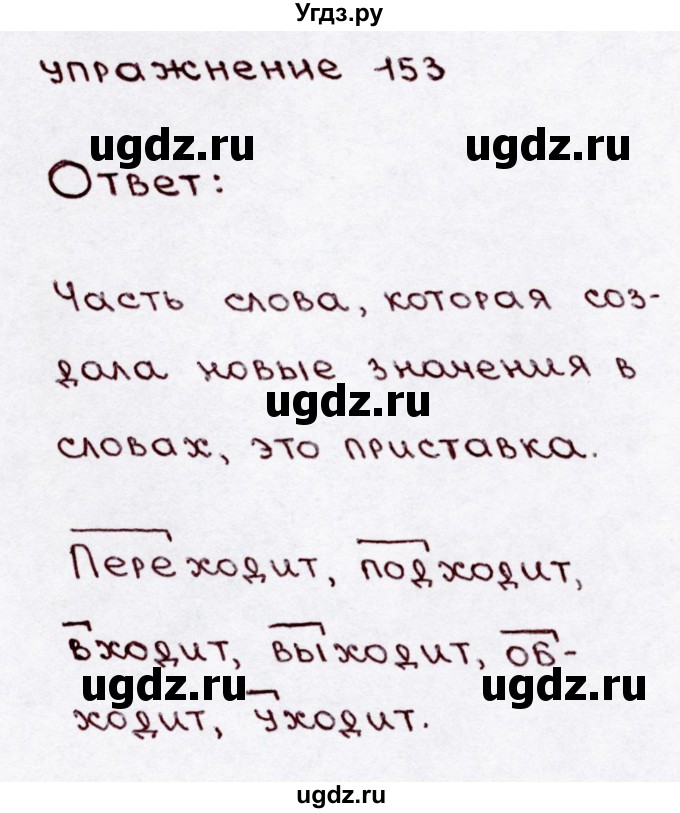 Угдз.ру
упражнение 153
ugdz.ru ugdz.ru
Ответ:
Часть слова, которая соз-
дала новые значения в
ugdz.ru
словах, это приставка.
Переходит, подходит,
входит, выходит, об-
ugdz.ru ugdz.ru
ходит, уходит.
ugdz.ru